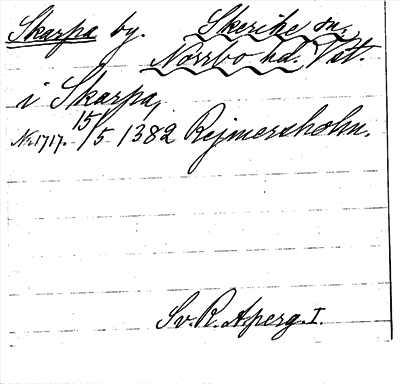 Skarpa by. Skerike sn.
Norrbo hd. Vstt.
i Skarpa,
Nr. 1717. 15/5 1382 Rejmersholm.
Sv. R. Aperg. I.